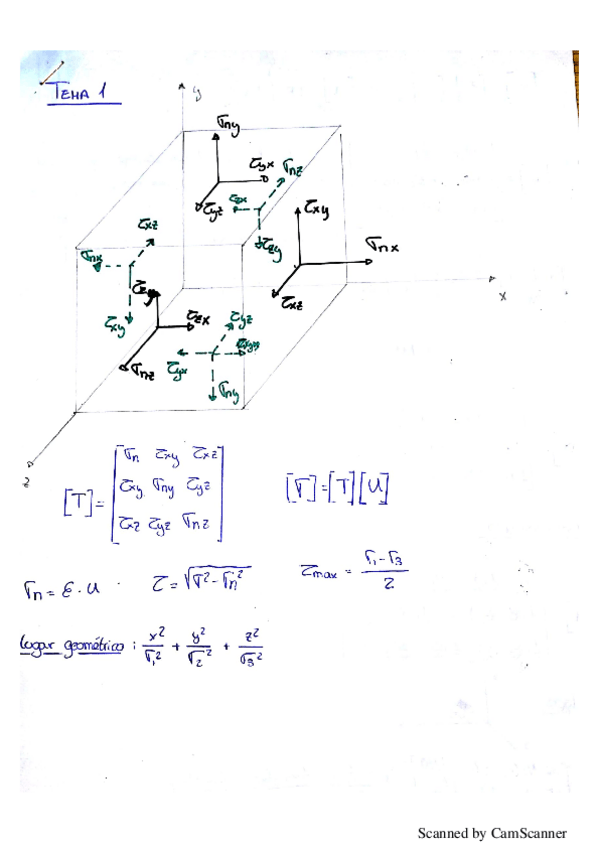 TEMA 1
y
σny
τyx
σnz
τyz
τzx
τxy
τxz
τzy
σnx
σnx
τzy
τxz
x
τxy
τzx
τyz
τyx
σnz
σny
z
[T]= [σn τxy τxz
τxy σny τyz
τxz τyz σnz]
[σ]=[T][U]
σn = ε · u
τ = √σ² - σn²
τmax = σ1 - σ3 / 2
Lugar geométrico : x²/σ1² + y²/σ2² + z²/σ3²
Scanned by CamScanner